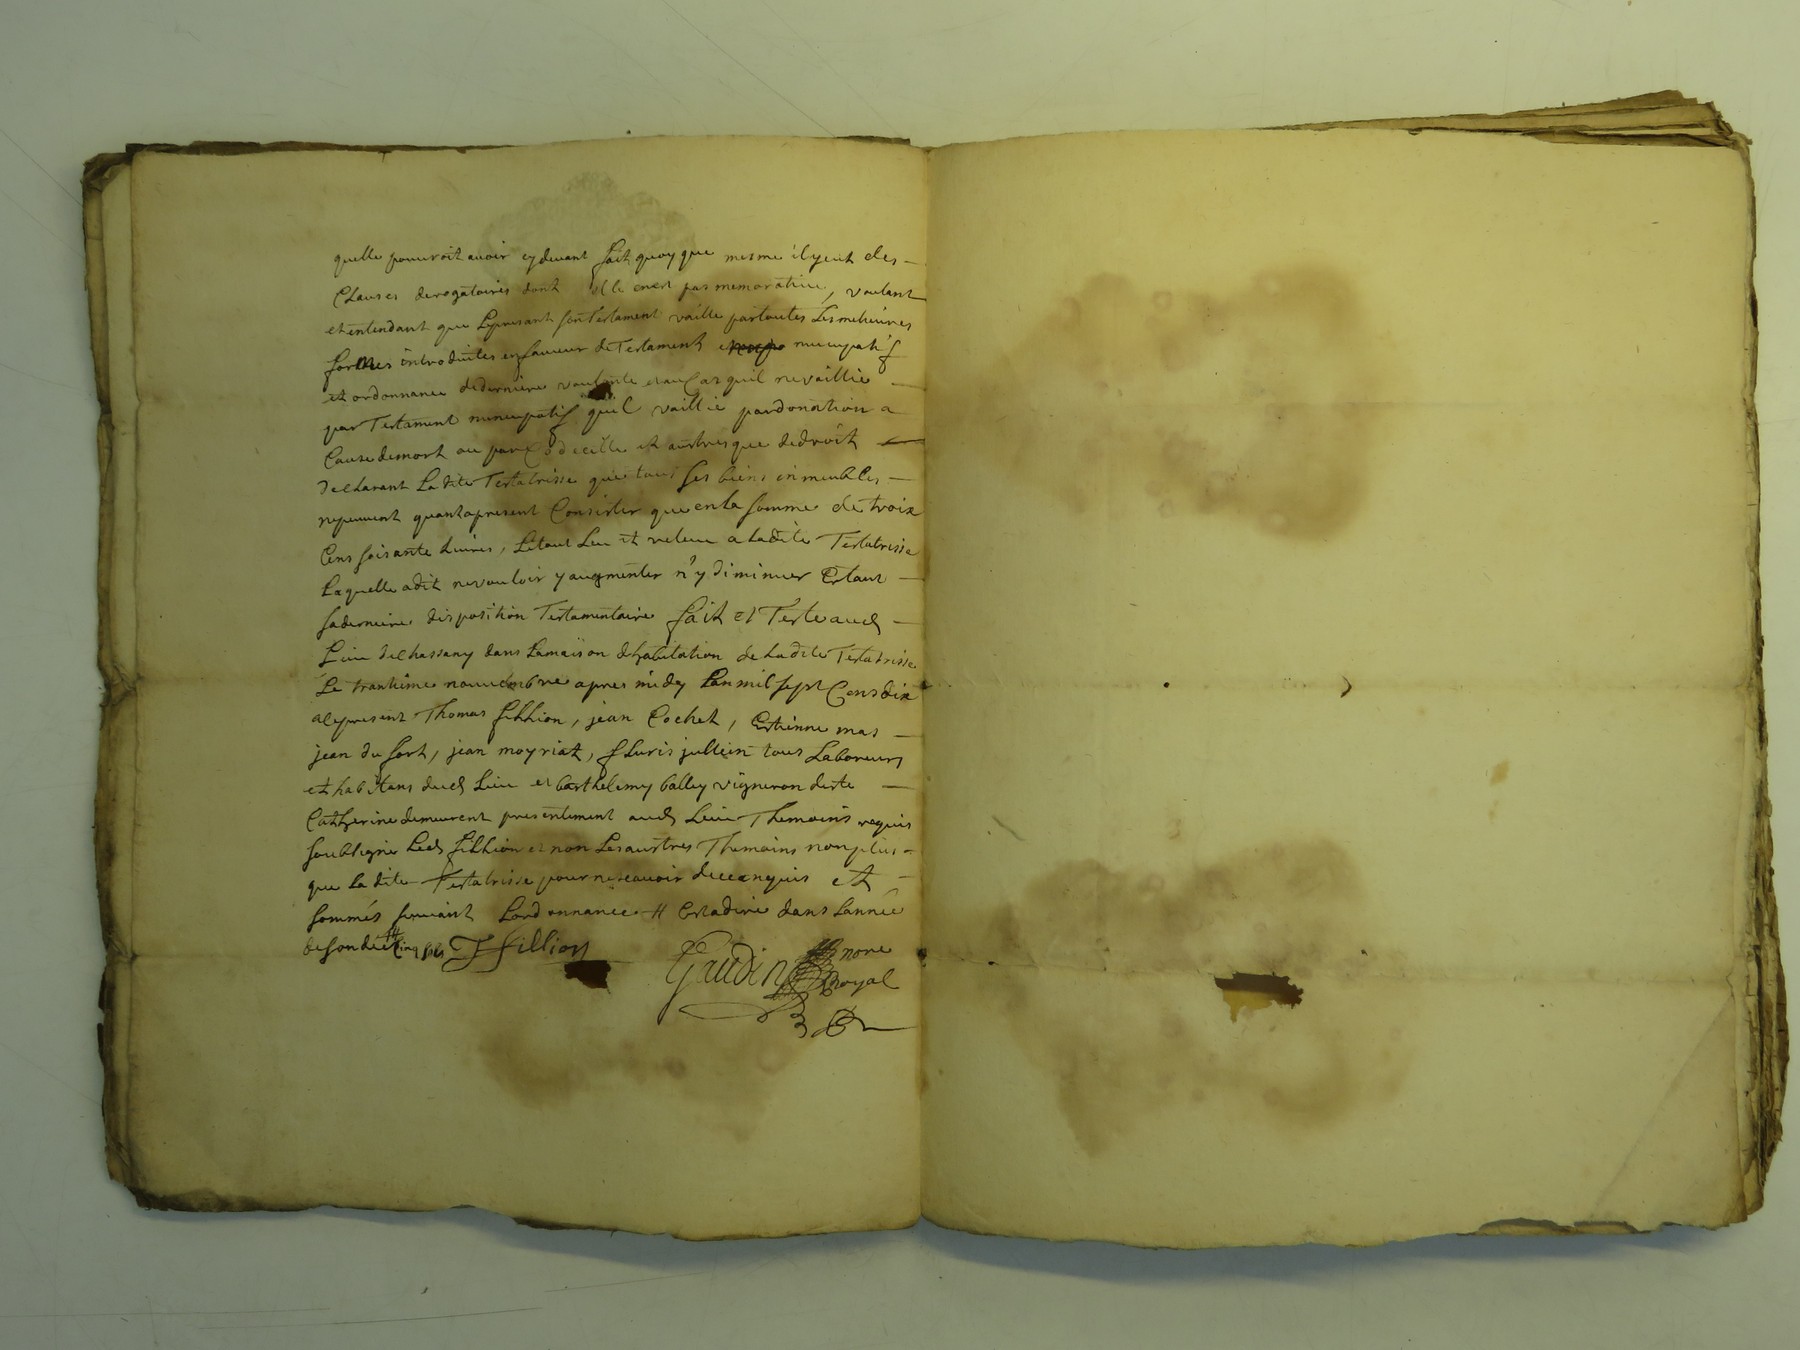 quelle pouvroit avoir cydevant fait quoy que mesme il yeut des
Clauses derogatoires dont elle enest pas memorative, voulant
et entendant que Lepresant son Testament vaille partoutes Les melieures
formes introduites en faveur de Testament nuncupatif
et ordonnance dedernière voulente et au Cas quil ne vaillie
par Testament nuncupatif quil vaillie pardonation a
Cause demort ou par Codecille et austres que dedroit
declarant La dite Testatrisse que tous ses biens inmeubles
nepeuvent quantapresent Consister que en la somme de trois
Cens soisante Livres, Letout Leu et releu a Ladite Testatrisse
Laquelle adit nevouloir y augmenter n'y diminuer Estant
saderniere disposition Testamentaire fait et Teste aud
Lieu de Chassany dans Lamaison dhabitation de Ladite Testatrisse
Le trantieme novembre apres midy Lan mil sept Cens dix
a Cepresent Thomas fillion, jean Cochet, Estienne mas
jean du fort, jean moyriat, fluris jullien tous Laboreurs
et habitans dud Lieu et barthelemy balley vigneron de ste
Catherine demeurent presentement aud Lieu Themoins requis
soubsigné Led fillion et non Les austres Themoins non plus
que La dite Testatrisse pour ne scavoir de ce enquis et
sommés suivant Lordonnance # Estadire dans Lannée
de son decé # T fillion
Gaudin nore
Royal